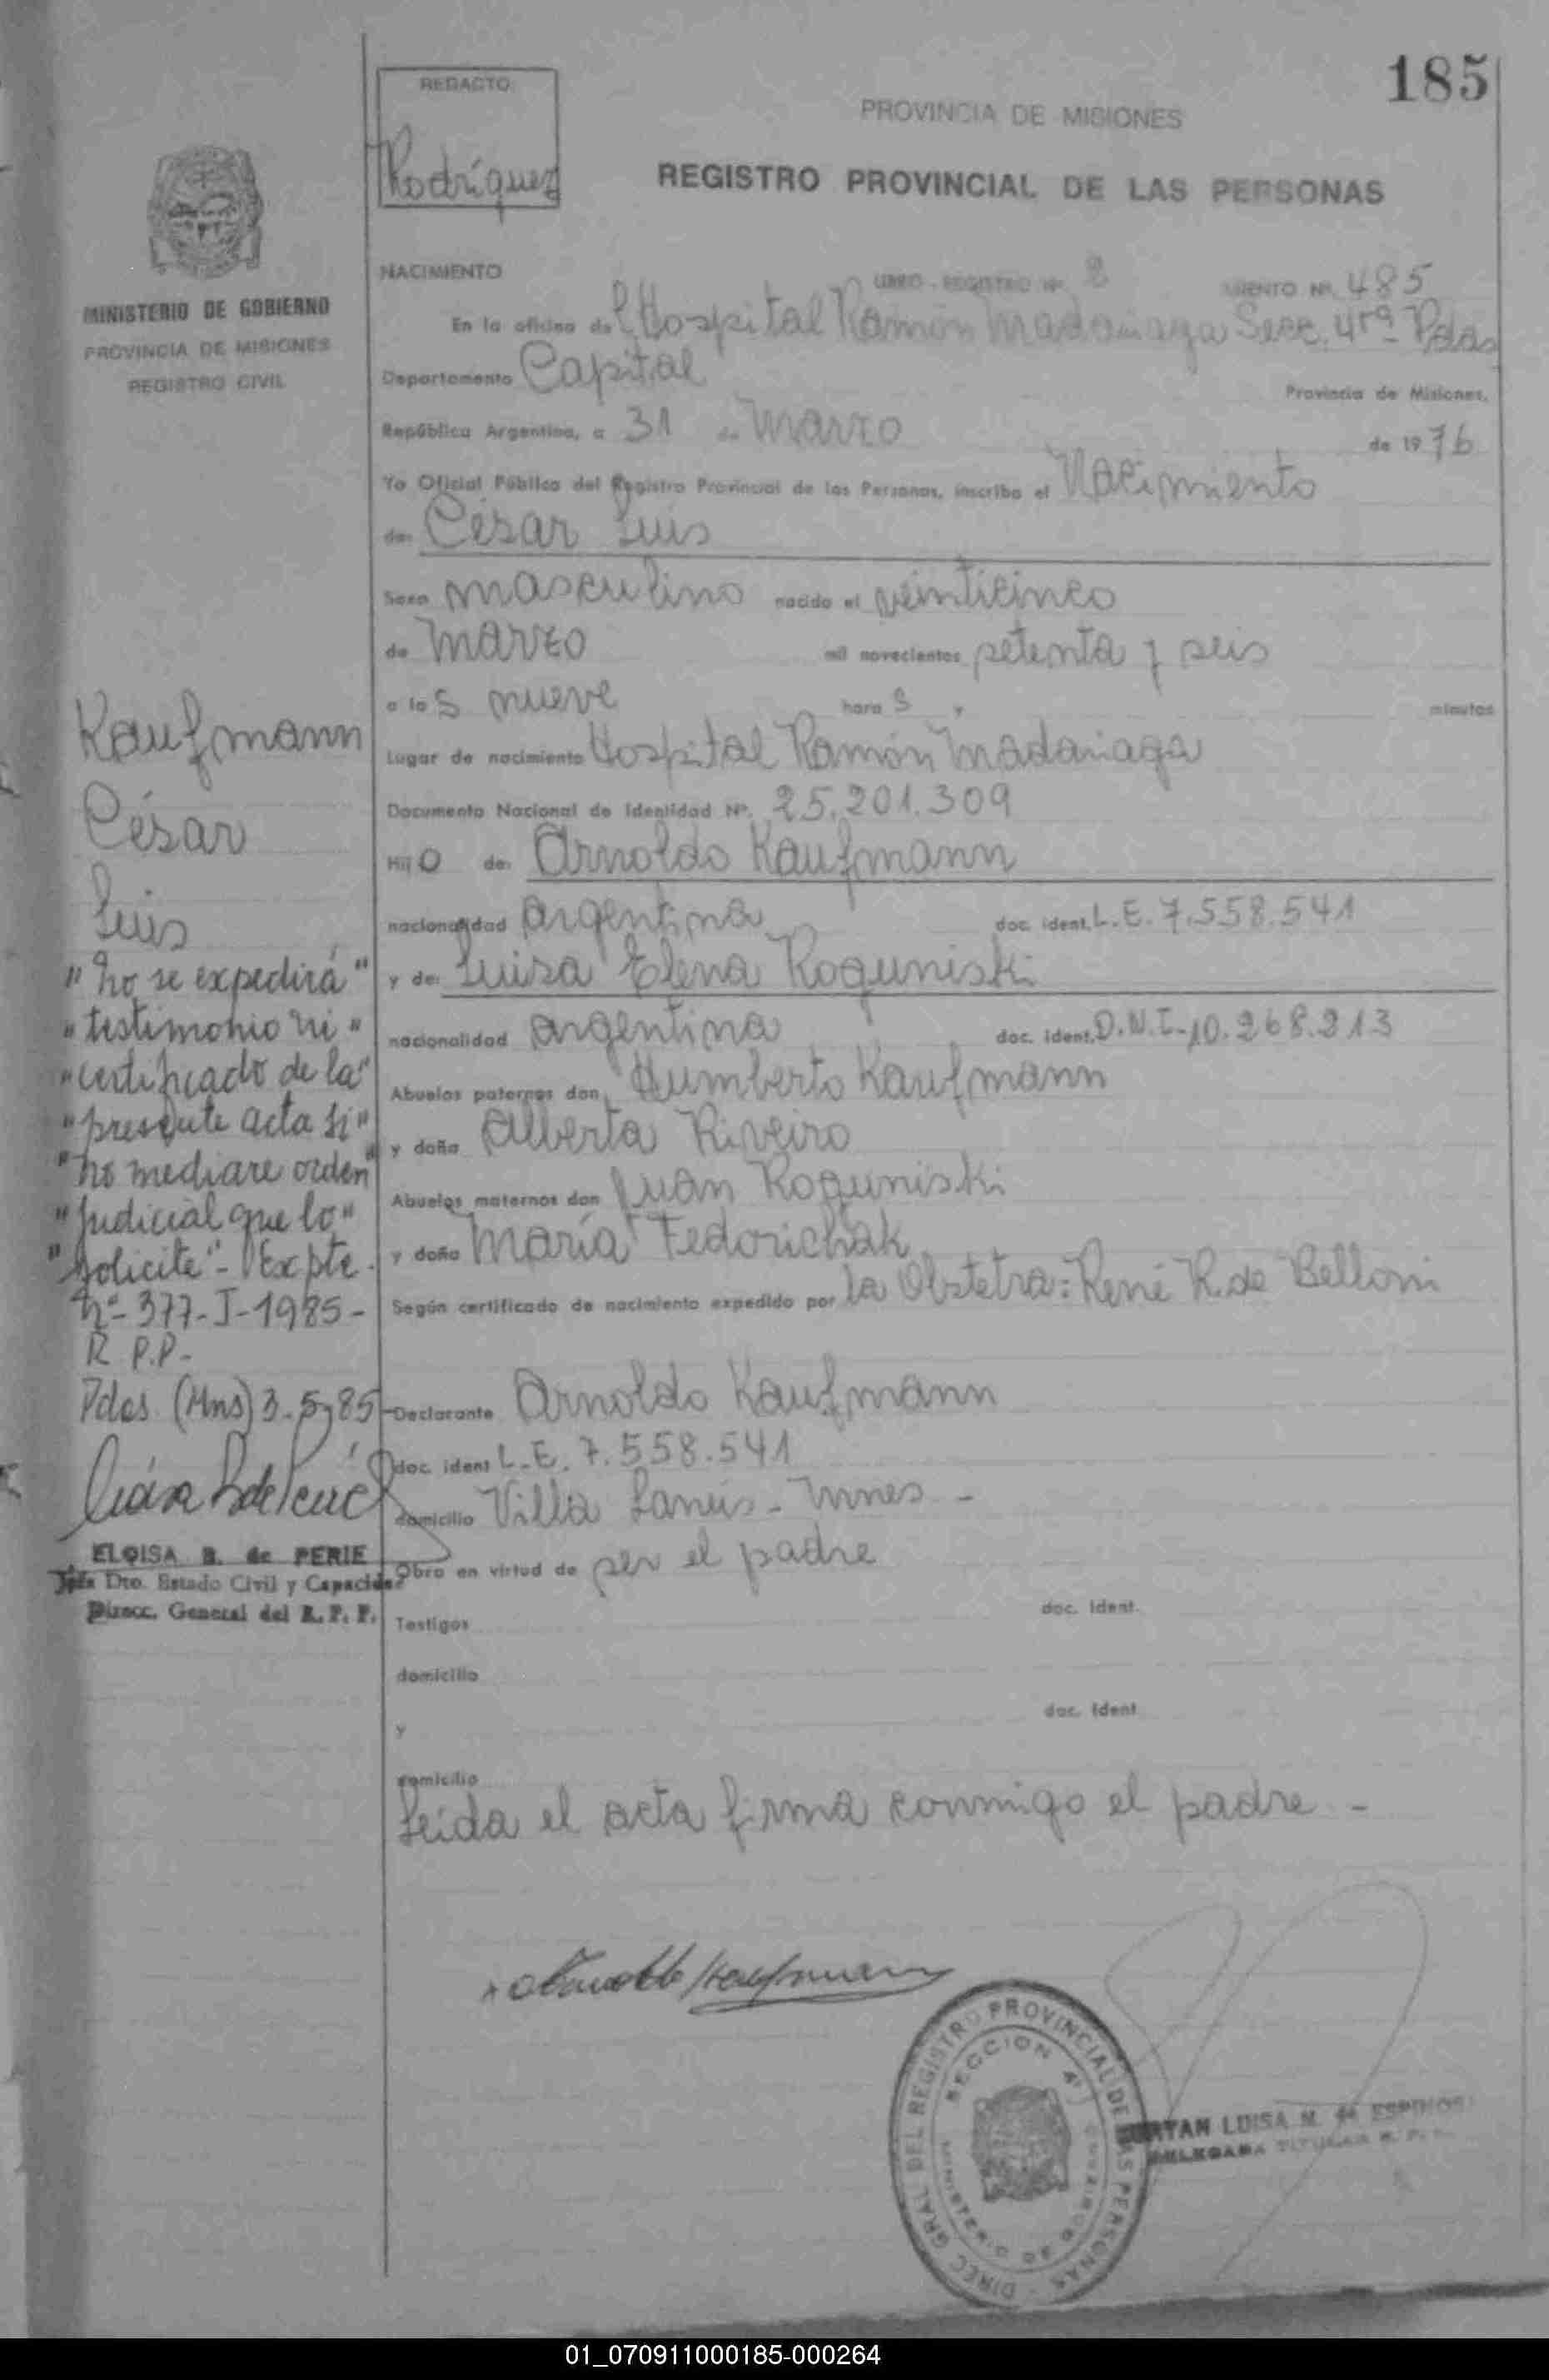 185
REDACTO
Rodríguez
PROVINCIA DE MISIONES
REGISTRO PROVINCIAL DE LAS PERSONAS
MINISTERIO DE GOBIERNO
PROVINCIA DE MISIONES
REGISTRO CIVIL
NACIMIENTO LIBRO - REGISTRO Nº 8 MIENTO Nº 485
En la oficina del Hospital Ramón Madariaga Secc. 4ra - Pdas
Departamento Capital Provincia de Misiones,
República Argentina, a 31 de Marzo de 1976
Yo Oficial Público del Registro Provincial de las Personas, inscribo el Nacimiento
de: César Luis
Sexo masculino nacido el veinticinco
de Marzo mil novecientos setenta y seis
a las nueve horas, minutos
Lugar de nacimiento Hospital Ramón Madariaga
Documento Nacional de Identidad Nº. 25.201.309
Hijo de: Arnoldo Kaufmann
nacionalidad argentina doc. ident. L.E. 7.558.541
y de: Luisa Elena Roguniski
nacionalidad argentina doc. ident. D.N.I-10.268.213
Abuelos paternos don Humberto Kaufmann
y doña Alberta Riveiro
Abuelos maternos don Juan Roguniski
y doña María Fedorichak
Según certificado de nacimiento expedido por la Obstetra: René R. de Belloni
Declarante Arnoldo Kaufmann
doc. ident L.E. 7.558.541
domicilio Villa Lanús - Mnes -
Obra en virtud de ser el padre
Testigos doc. ident.
domicilio
y doc. ident
domicilio
Leida el acta firma conmigo el padre -
Kaufmann
César
Luis
"no se expedirá"
"testimonio ni"
"certificado de la"
"presente acta si"
"no mediare orden"
"judicial que lo"
"solicite" - Expte.
nº- 377-I-1985-
R P.P-
Pdas. (Mns) 3-5-85
ELOISA B. de PERIE
Jefa Dto. Estado Civil y Capacidad
Direcc. General del R. P. P.
Arnoldo Kaufmann
DIREC. GRAL. DEL REGISTRO PROVINCIAL DE LAS PERSONAS
SECCION 4ª
MINISTERIO DE GOBIERNO
LUISA M. de
DELEGADA TITULAR R. P.
01_070911000185-000264